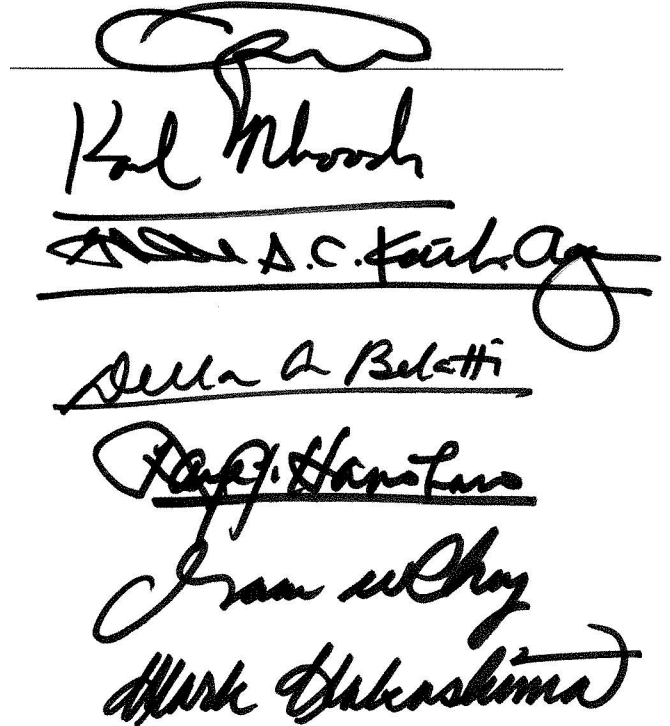 Karl Rhoads
A.C. Keith-Agaran
Della A Belatti
Faye P. Hanohano
Isaac W Choy
Mark Nakashima